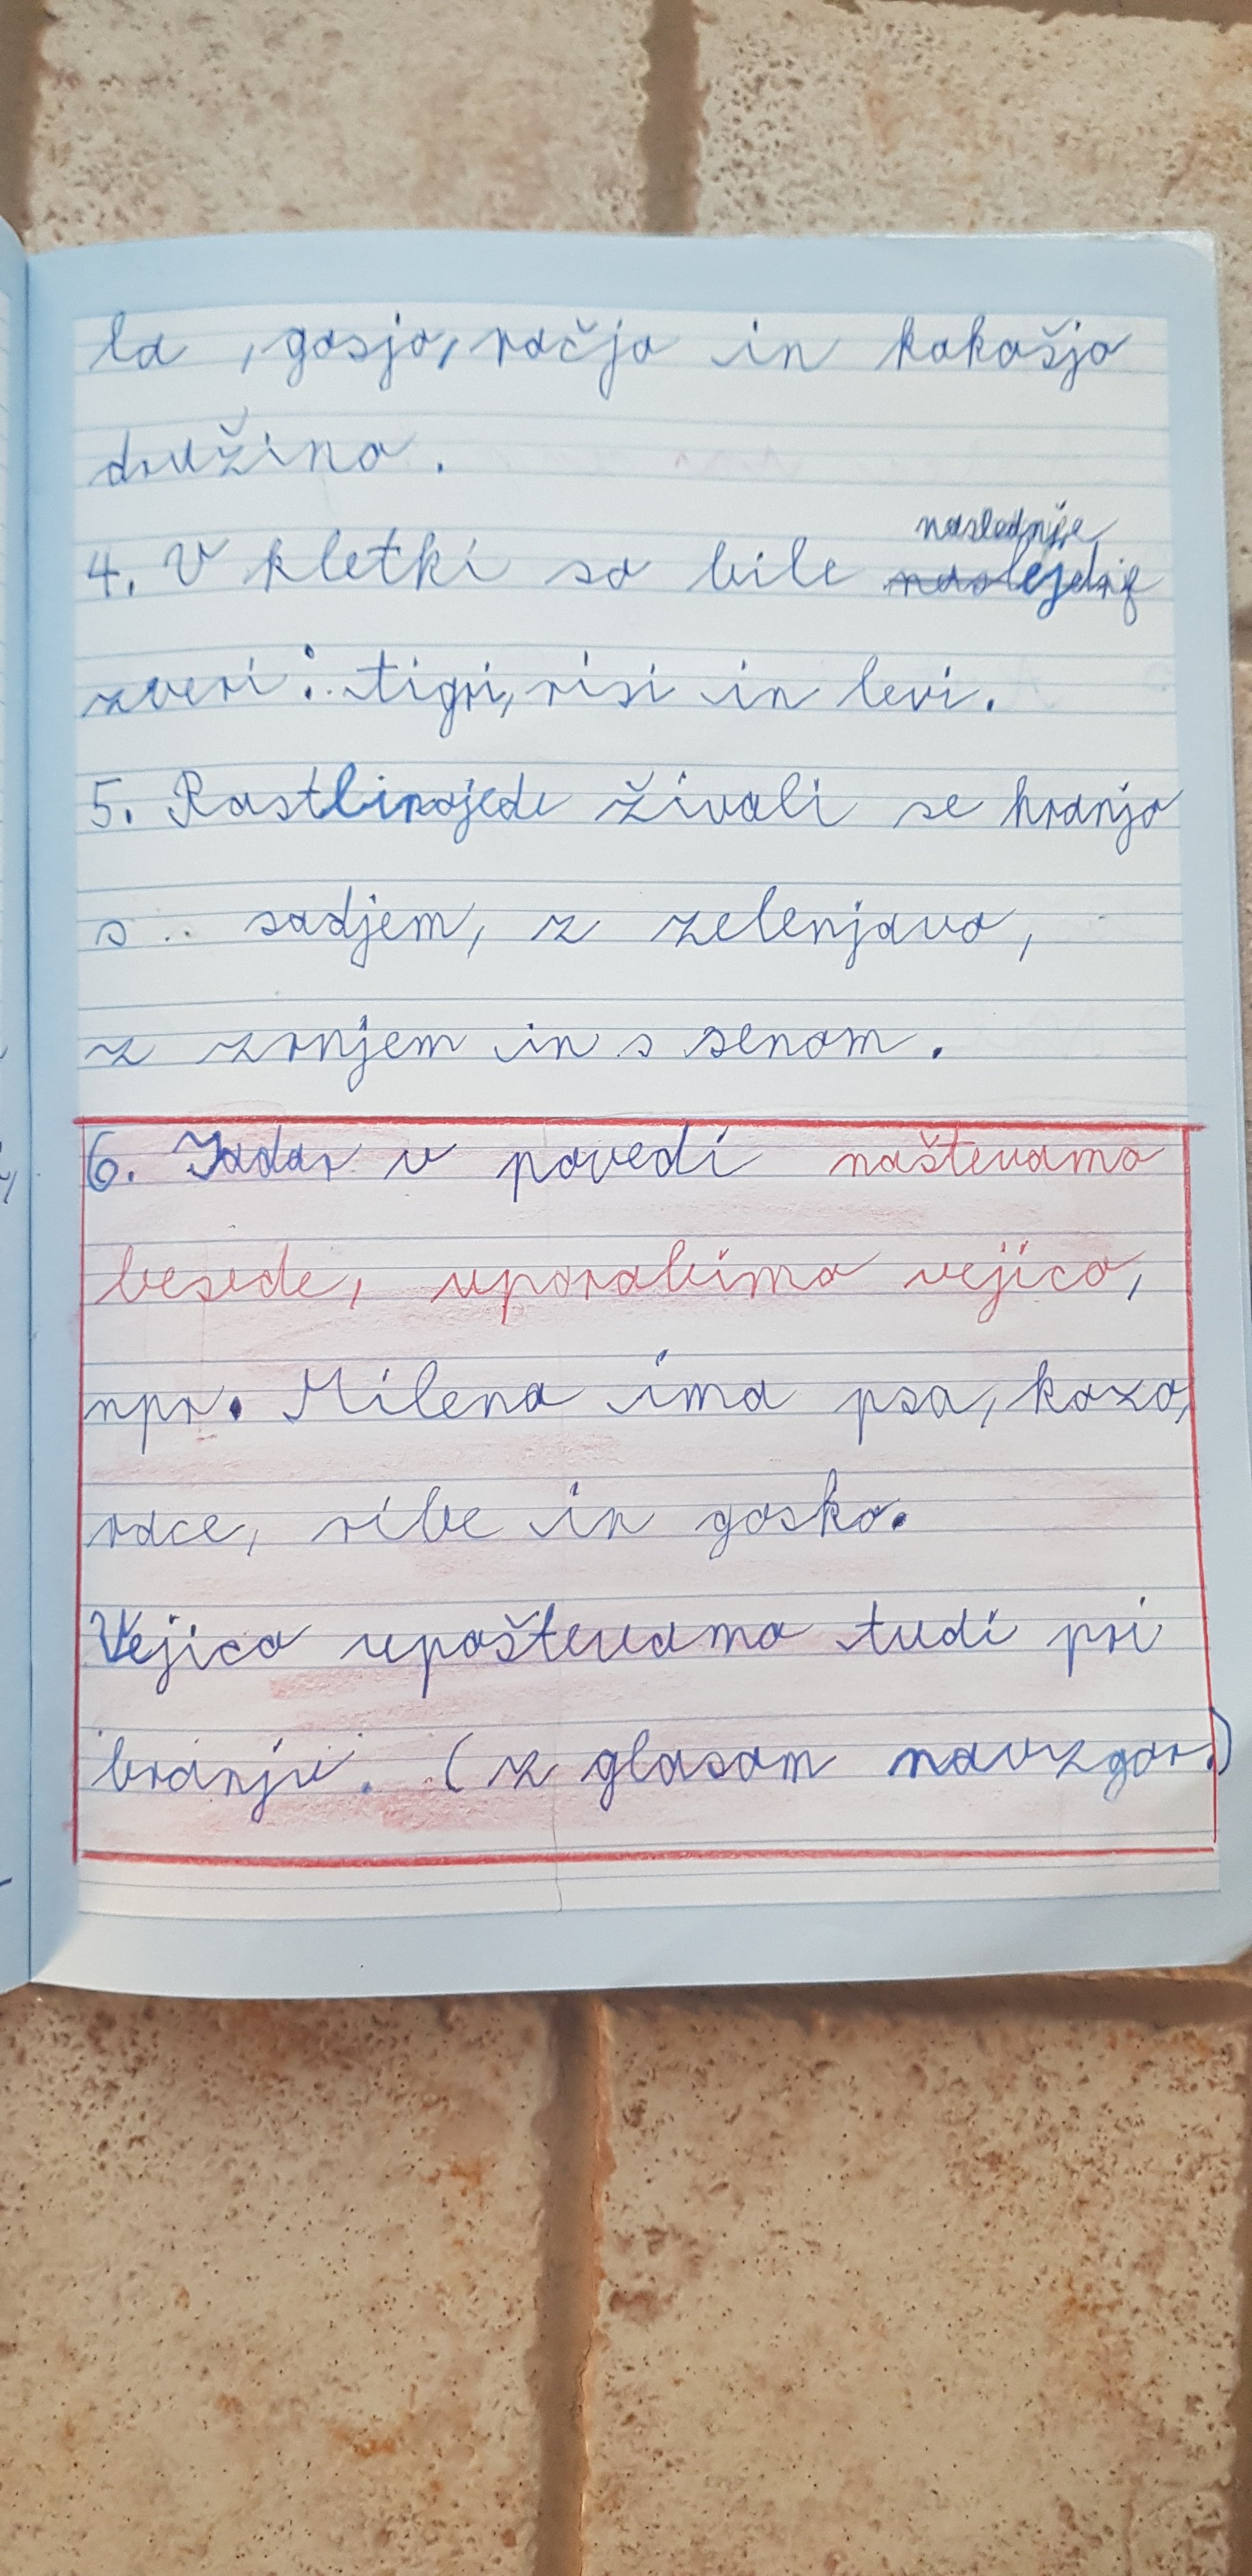 la , gosjo, račjo in kokošjo
družino.
4. V kletki so bile naslednje
zveri: tigri, risi in levi.
5. Rastlinojede živali se hranjo
s sadjem, z zelenjavo,
z zrnjem in s senom.
6. Kadar v povedi naštevamo
besede, uporabimo vejico,
npr. Milena ima psa, kozo,
race, ribe in gosko.
Vejico upoštevamo tudi pri
branju. (z glasom navzgor.)